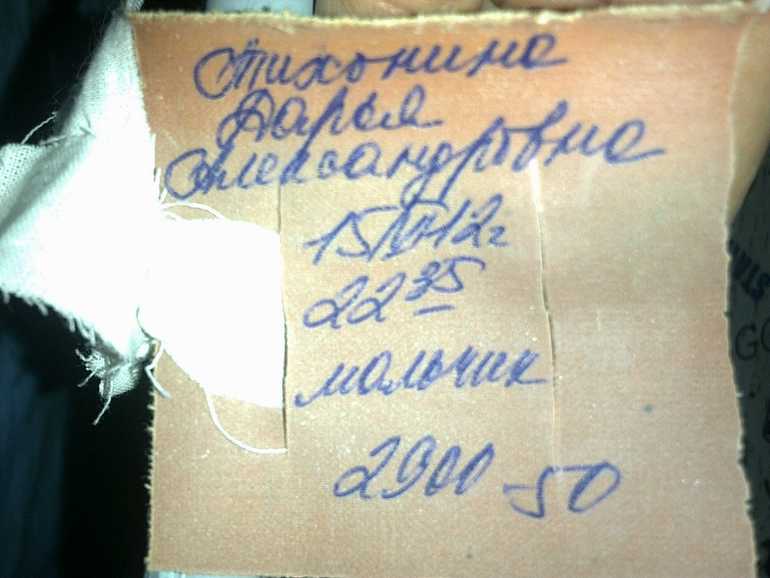 Тихонина
Дарья
Александровна
22 35
мальчик
2900 - 50